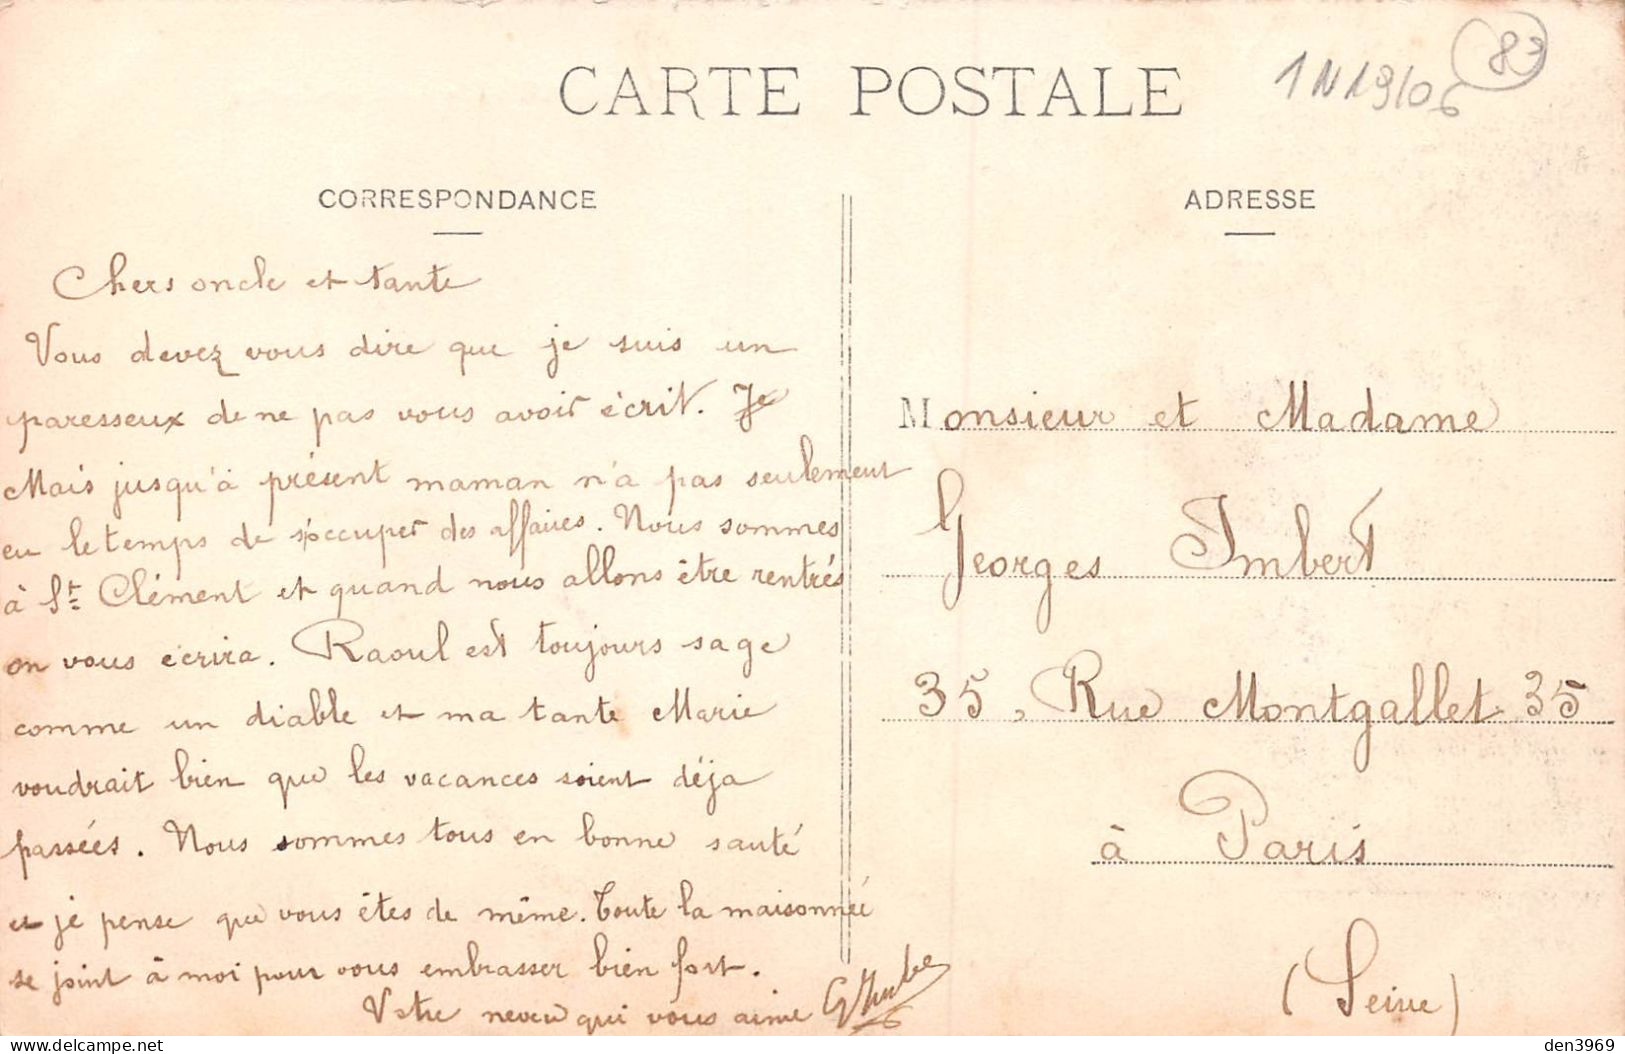 CARTE POSTALE
1N19/06
83
CORRESPONDANCE
Chers oncle et tante
Vous devez vous dire que je suis un
paresseux de ne pas vous avoir écrit. Je
Mais jusqu'à présent maman n'a pas seulement
eu le temps de s'occuper des affaires. Nous sommes
à St Clément et quand nous allons être rentrés
on vous écrira. Raoul est toujours sage
comme un diable et ma tante Marie
voudrait bien que les vacances soient déja
passées. Nous sommes tous en bonne santé
et je pense que vous êtes de même. Toute la maisonnée
se joint à moi pour vous embrasser bien fort.
Votre neveu qui vous aime
ADRESSE
Monsieur et Madame
Georges Imbert
35, Rue Montgallet 35
à Paris
(Seine)
delcampe.net
den3969